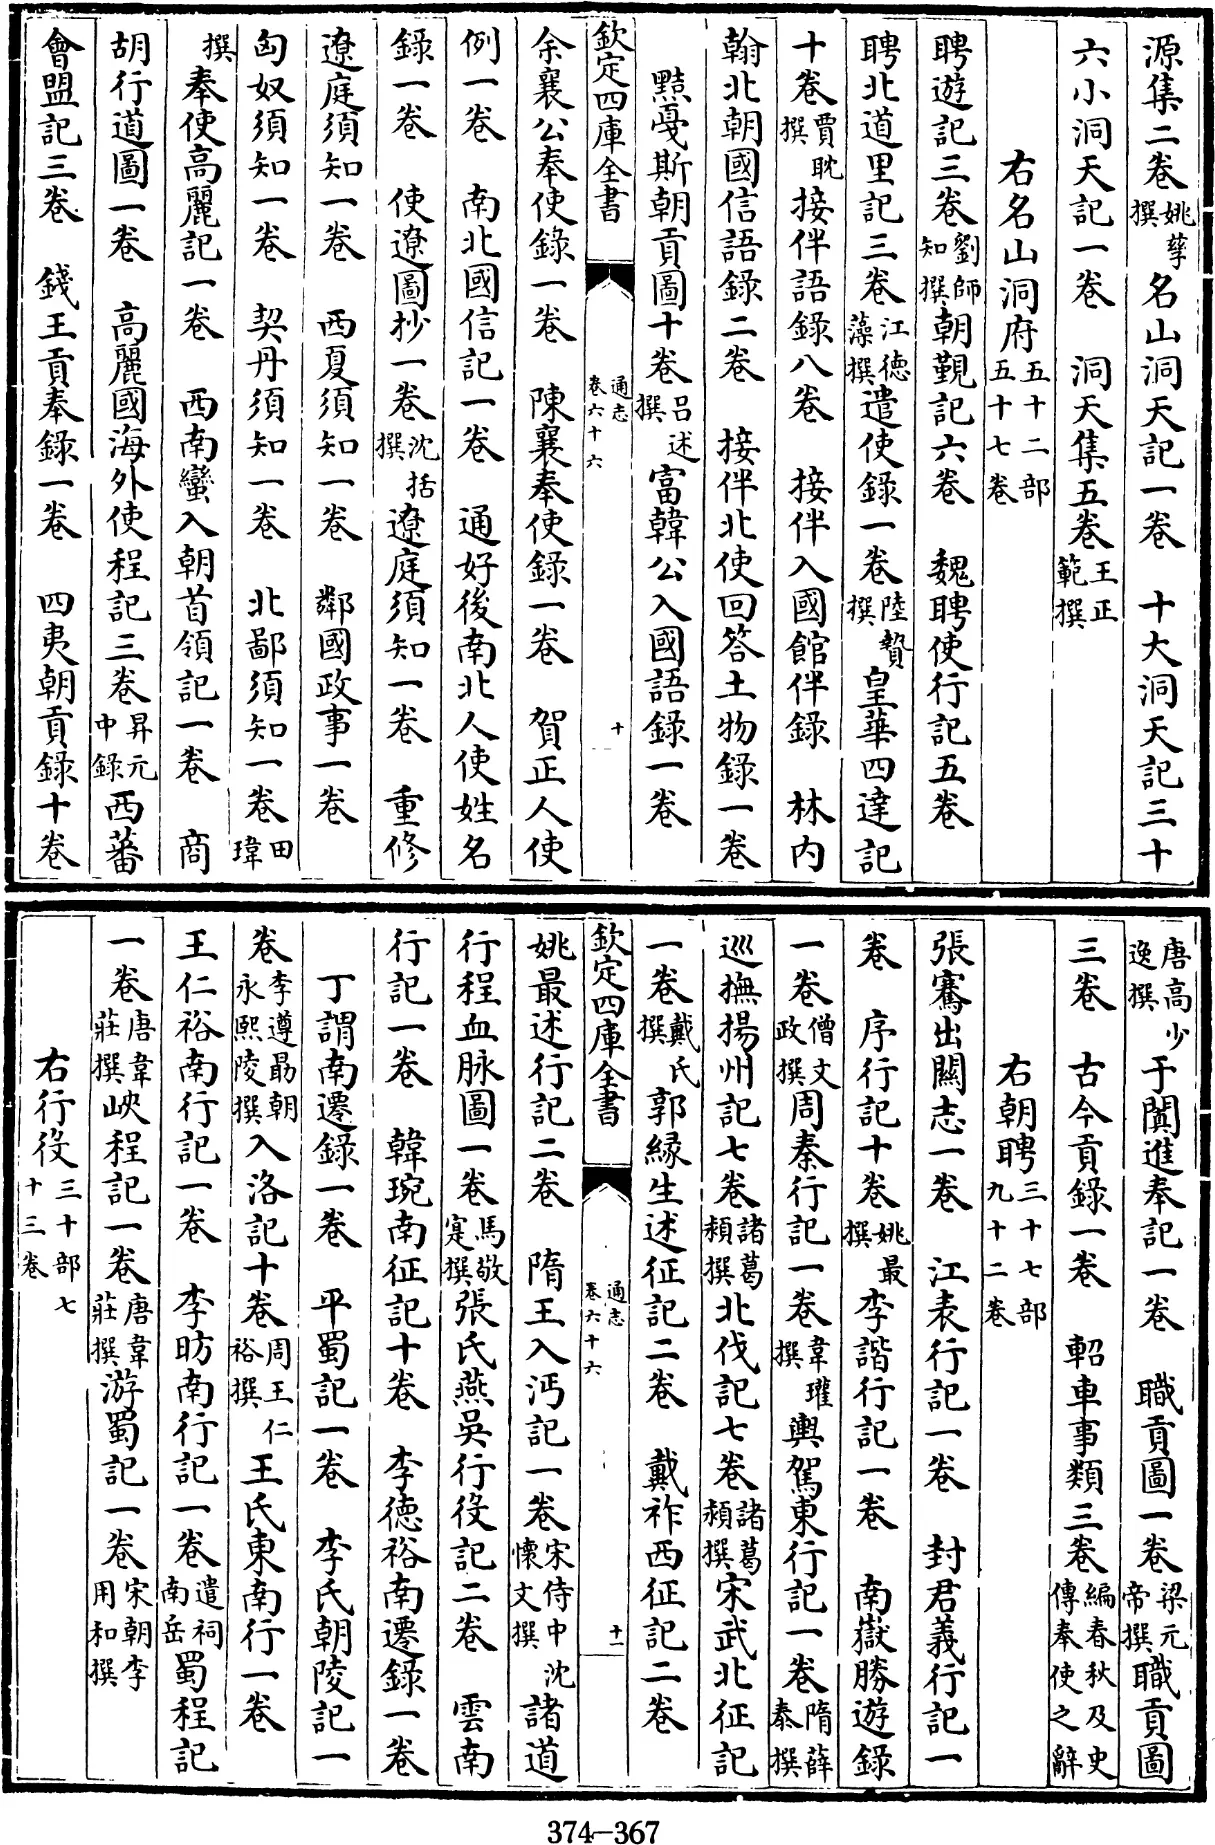 源集二卷姚撰孳名山洞天記一卷　十大洞天記三十
六小洞天記一卷　洞天集五卷王正範撰
右名山洞府五十二部五十七卷
聘遊記三卷劉師知撰朝覲記六卷　魏聘使行記五卷
聘北道里記三卷江德藻撰遣使錄一卷陸贄撰皇華四達記
十卷賈耽撰接伴語錄八卷　接伴入國館伴錄　林内
翰北朝國信語錄二卷　接伴北使回答土物錄一卷
黠戞斯朝貢圖十卷吕述撰富韓公入國語錄一卷
欽定四庫全書　通志卷六十六　十
余襄公奉使錄一卷　陳襄奉使錄一卷　賀正人使
例一卷　南北國信記一卷　通好後南北人使姓名
錄一卷　使遼圖抄一卷沈括撰遼庭須知一卷　重修
遼庭須知一卷　西夏須知一卷　鄰國政事一卷
匈奴須知一卷　契丹須知一卷　北鄙須知一卷田瑋
撰奉使高麗記一卷　西南蠻入朝首領記一卷　商
胡行道圖一卷　高麗國海外使程記三卷昇元中錄西蕃
會盟記三卷　錢王貢奉錄一卷　四夷朝貢錄十卷
唐高少逸撰于闐進奉記一卷　職貢圖一卷梁元帝撰職貢圖
三卷　古今貢錄一卷　軺車事類三卷編春秋及史傳奉使之辭
右朝聘三十七部九十二卷
張騫出關志一卷　江表行記一卷　封君義行記一
卷　序行記十卷姚最撰李諧行記一卷　南嶽勝遊錄
一卷僧文政撰周秦行記一卷韋瓘撰輿駕東行記一卷隋薛泰撰
巡撫揚州記七卷諸葛頴撰北伐記七卷諸葛頴撰宋武北征記
一卷戴氏撰郭緣生述征記二卷　戴祚西征記二卷
欽定四庫全書　通志卷六十六　十一
姚最述行記二卷　隋王入沔記一卷宋侍中沈懷文撰諸道
行程血脉圖一卷馬敬寔撰張氏燕吳行役記二卷　雲南
行記一卷　韓琬南征記十卷　李德裕南遷錄一卷
丁謂南遷錄一卷　平蜀記一卷　李氏朝陵記一
卷李遵勗朝永熙陵撰入洛記十卷周王仁裕撰王氏東南行一卷
王仁裕南行記一卷　李昉南行記一卷遣祠南岳蜀程記
一卷唐韋莊撰峽程記一卷唐韋莊撰游蜀記一卷宋朝李用和撰
右行役三十部七十三卷
374-367